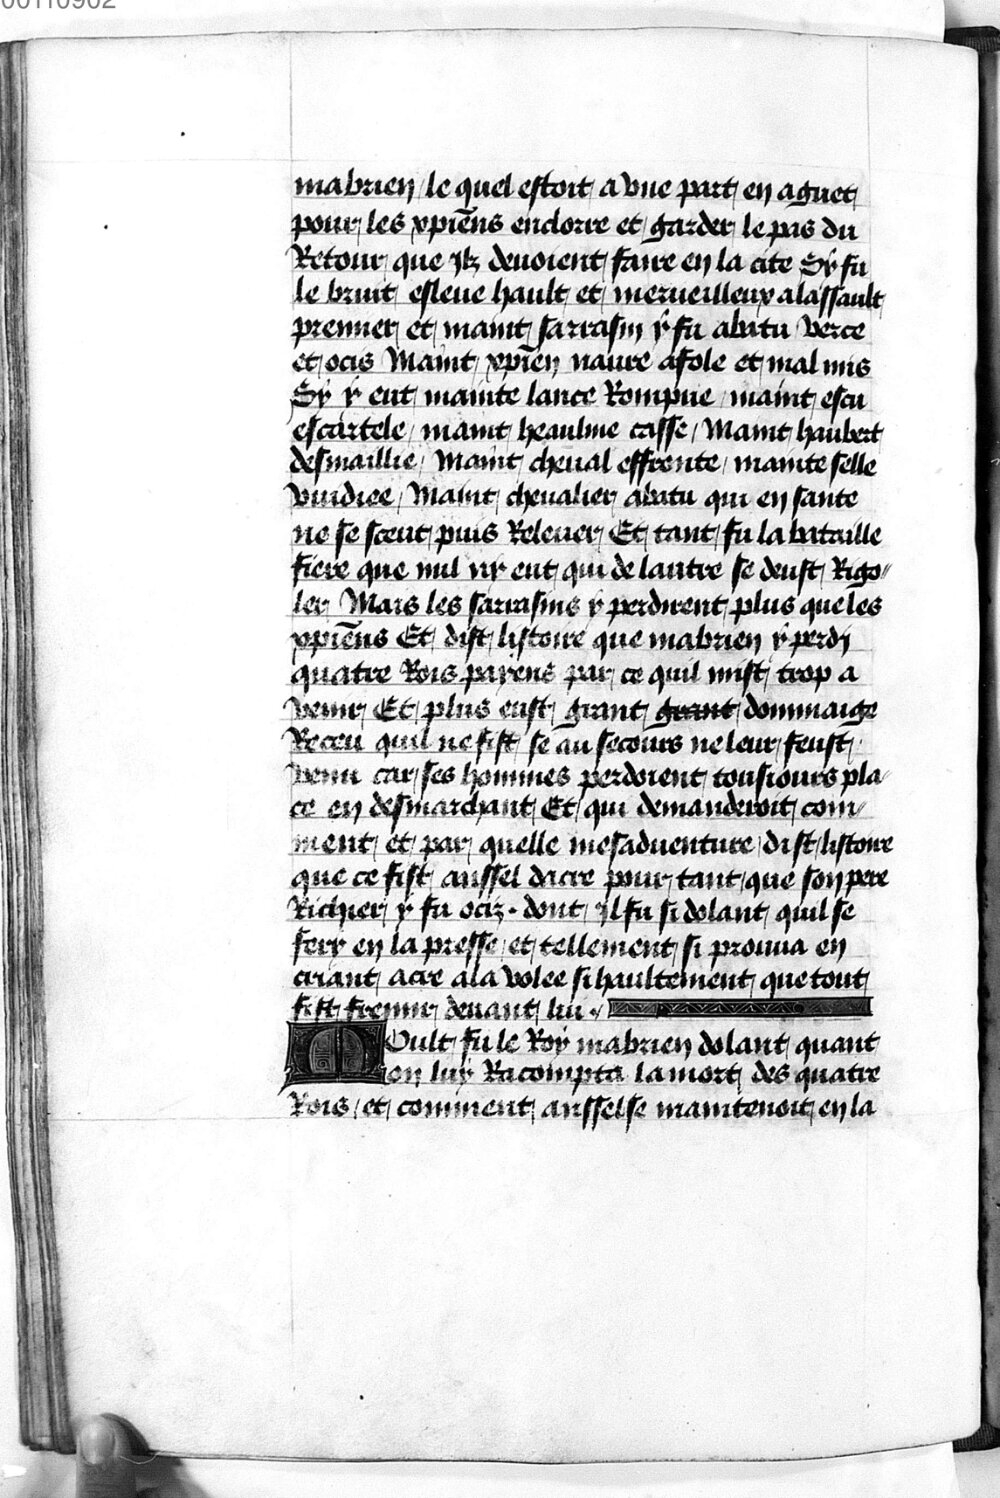 mabrien / le quel estoit a vne part en aguet
pour les xpiẽns enclorre et garder le pas du
Retour que ilz deuoient faire en la cite Sy fu
le bruit esleue hault et merueilleux a lassault
premier et maint sarrasin y fu abatu verce
et ocis Maint xpiẽn naure afole et mal mis
Sy y eut mainte lance Rompue / maint escu
escartele / maint heaulme casse / Maint haubert
desmaillie / Maint cheual effrente / mainte selle
vuidiee / Maint cheualier abatu qui en sante
ne se sceut puis Releuer Et tant fu la bataille
fiere que nul ny eut qui de lautre se deust Rigo〃
ler Mais les sarrasins y perdirent plus que les
xpiẽns Et dist listoire que mabrien y perdi
quatre Rois payens par ce quil mist trop a
venir Et plus eust grant grant dommaige
Receu quil ne fist se au secours ne leur feust
venu car ses hommes perdoient tousiours pla/
ce en desmarchant Et qui demanderoit com/
ment et par quelle mesaduenture dist listoire
que ce fist anssel dacre pour tant que son pere
Richier y fu ociz . dont Il fu si dolant quil se
fery en la presse et tellement si prouua en
criant acre a la volee si haultement que tout
fist fremir deuant lui ./
Moult fu le Roy mabrien dolant quant
on luy Racompta la mort des quatre
Rois / et comment anssel se maintenoit en la